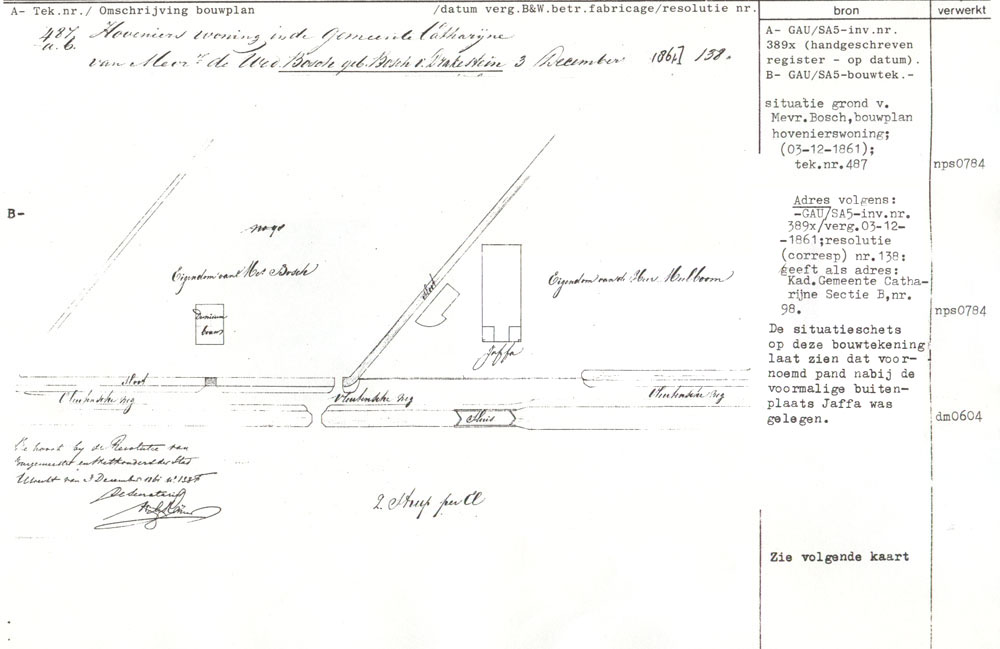 A- Tek.nr./ Omschrijving bouwplan /datum verg.B&W.betr.fabricage/resolutie nr.
487
a. b.
Hoveniers woning in de Gemeente Catharijne
van Mevr. de Wed. Bosch geb. Bosch v. Drakestein 3 December 1861] 138.
B-
Eigendom van Bosch
Sloot
Eigendom van den Heer
Jaffa
Sloot
Vleutensche weg
Vleutensche weg
Vleutensche weg
Sluis
Behoort by de Resolutie van
Burgemeester en Wethouders der Stad
Utrecht van 3 December 1861 nº 138
De Secretaris
2 Streep per El
bron
A- GAU/SA5-inv.nr.
389x (handgeschreven
register - op datum).
B- GAU/SA5-bouwtek.-
situatie grond v.
Mevr.Bosch,bouwplan
hovenierswoning;
(03-12-1861);
tek.nr.487
Adres volgens:
-GAU/SA5-inv.nr.
389x/verg.03-12-
-1861;resolutie
(corresp) nr.138:
geeft als adres:
Kad.Gemeente Catha-
rijne Sectie B,nr.
98.
De situatieschets
op deze bouwtekening
laat zien dat voor-
noemd pand nabij de
voormalige buiten-
plaats Jaffa was
gelegen.
Zie volgende kaart
verwerkt
nps0784
nps0784
dm0604